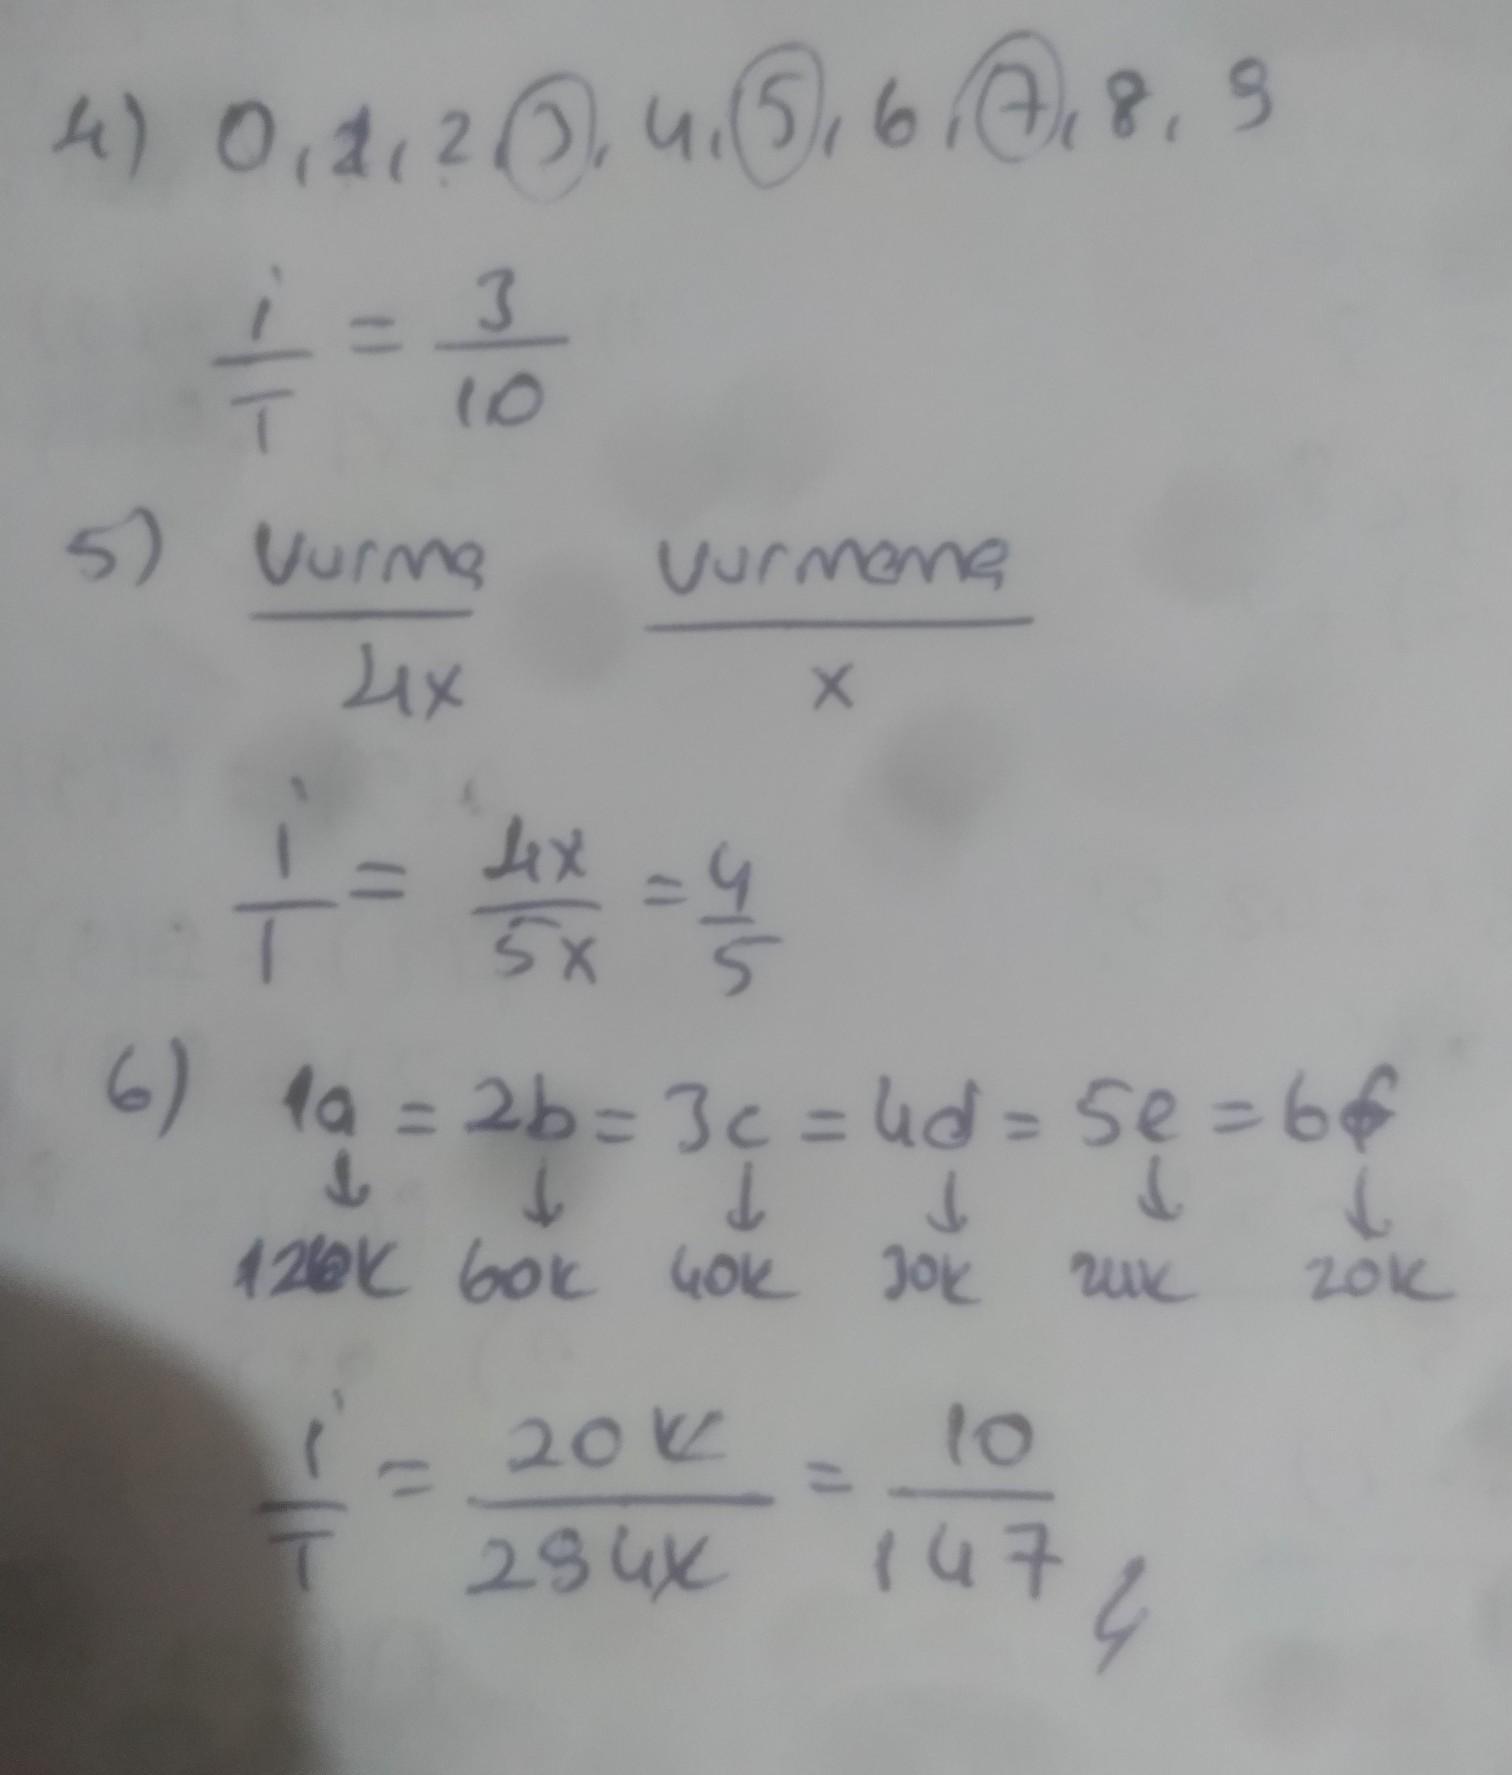 4) 0, 1, 2, 3, 4, 5, 6, 7, 8, 9
i/T = 3/10
5) Vurma Vurmama
4x x
i/T = 4x/5x = 4/5
6) 1a = 2b = 3c = 4d = 5e = 6f
↓ ↓ ↓ ↓ ↓ ↓
120k 60k 40k 30k 24k 20k
i/T = 20k/294k = 10/147